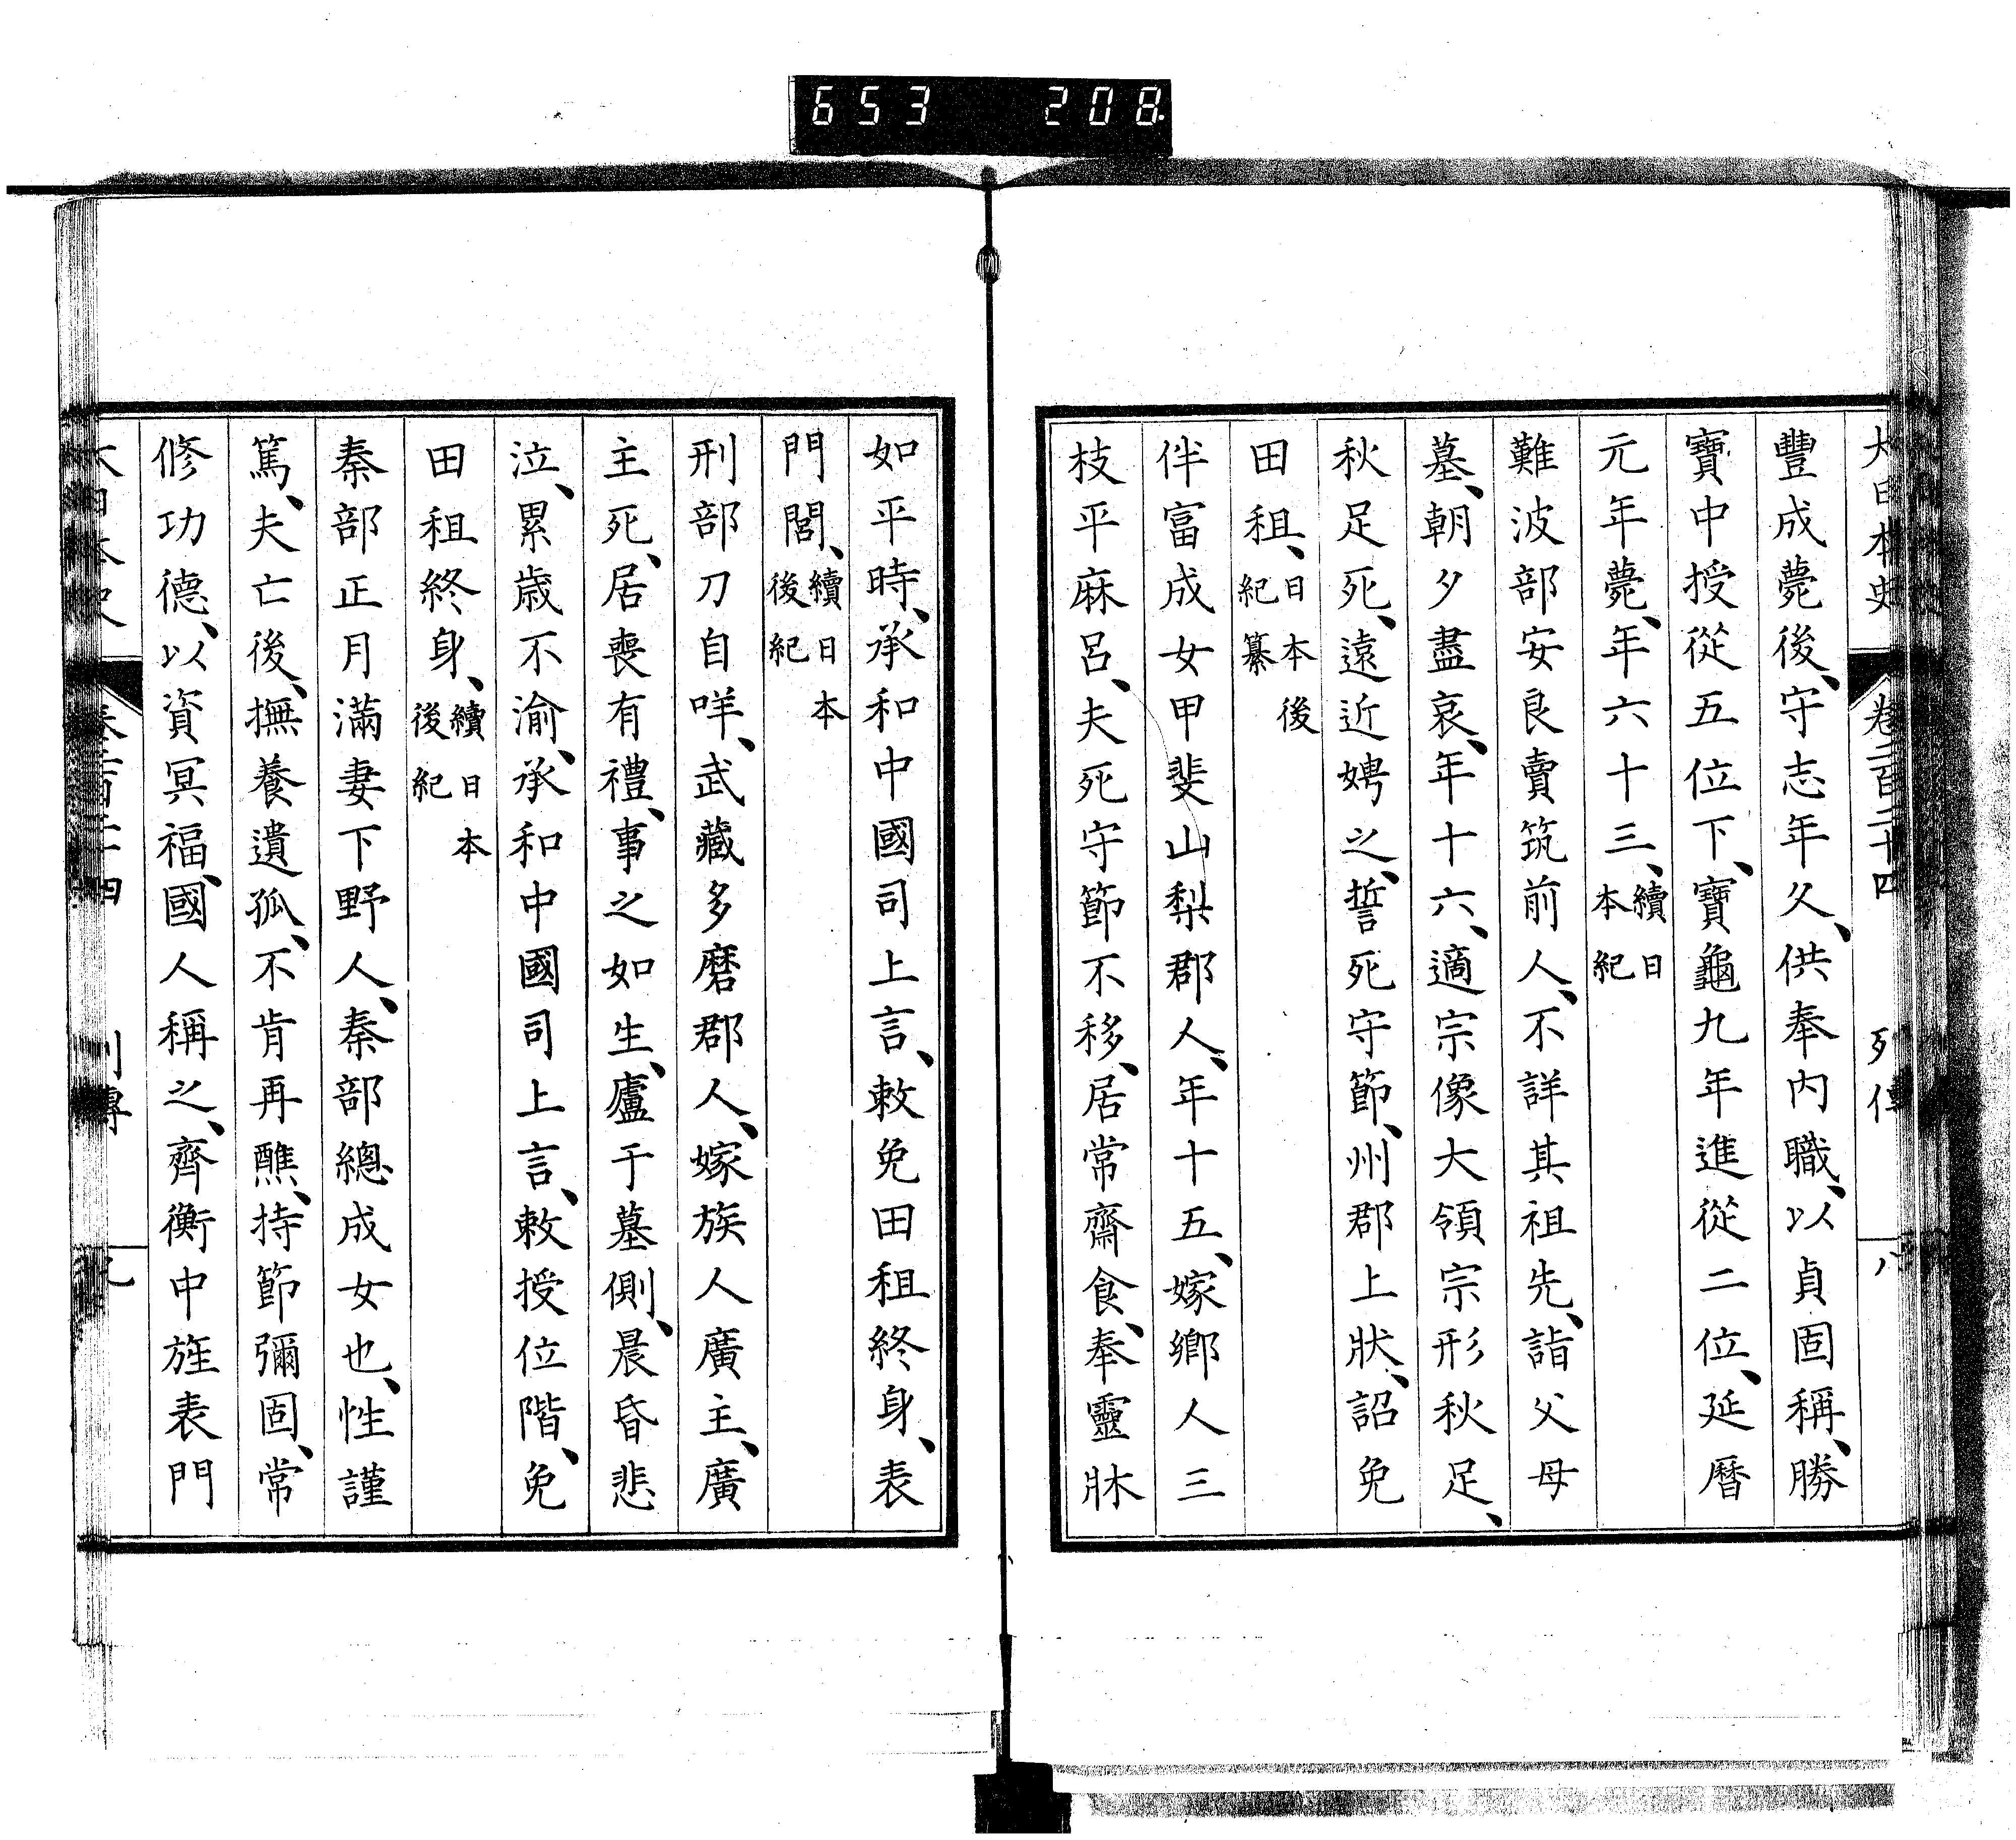 653 208
大日本史 卷二百二十四 列傳 八
豐成薨後、守志年久、供奉內職、以貞固稱、勝
寶中授從五位下、寶龜九年進從二位、延曆
元年薨、年六十三、續日本紀
難波部安良賣筑前人、不詳其祖先、詣父母
墓、朝夕盡哀、年十六、適宗像大領宗形秋足、
秋足死、遠近娉之、誓死守節、州郡上狀、詔免
田租、日本後紀纂
伴富成女甲斐山梨郡人、年十五、嫁鄉人三
枝平麻呂、夫死守節不移、居常齋食、奉靈牀
如平時、承和中國司上言、敕免田租終身、表
門閭、續日本後紀
刑部刀自咩、武藏多磨郡人、嫁族人廣主、廣
主死、居喪有禮、事之如生、廬于墓側、晨昏悲
泣、累歲不渝、承和中國司上言、敕授位階、免
田租終身、續日本後紀
秦部正月滿妻下野人、秦部總成女也、性謹
篤、夫亡後、撫養遺孤、不肯再醮、持節彌固、常
修功德、以資冥福、國人稱之、齊衡中旌表門
大日本史 卷二百二十四 列傳 九